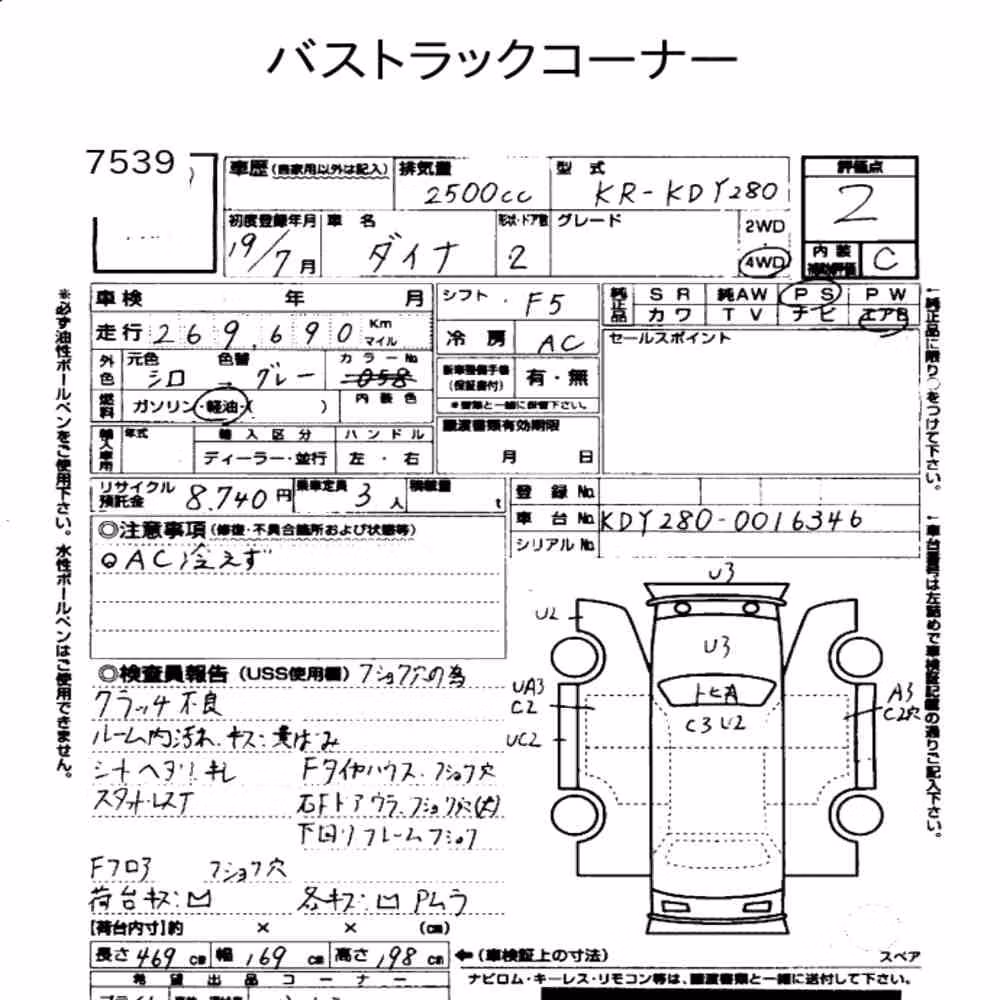 バストラックコーナー
7539
車歴(自家用以外は記入) 排気量 2500cc 型式 KR-KDY280 評価点 2
初度登録年月 19/7月 車名 ダイナ 形状・ドア数 2 グレード 2WD 4WD 内装補助評価 C
車検 年 月 シフト F5 純正品 SR 純AW PS PW
カワ TV ナビ エアB
走行 269,690 Km マイル 冷房 AC セールスポイント
外色 元色 シロ 色替 → グレー カラーNo. 058 内装色
新車整備手帳(保証書付) 有・無
燃料 ガソリン・軽油・( )
※書類と一緒に保管下さい。
輸入車用 年式 輸入区分 ハンドル 譲渡書類有効期限
ディーラー・並行 左・右 月 日
リサイクル預託金 8,740円 乗車定員 3人 積載量 t 登録No.
車台No. KDY280-0016346
シリアルNo.
◎注意事項(修復・不具合箇所および状態等)
○AC冷えず
◎検査員報告(USS使用欄) フショク穴の為
クラッチ不良
ルーム内汚れ.キズ:黄ばみ
シートヘタリ キレ Fタイヤハウス.フショク穴
スタットレスT 右Fドアウラ.フショク穴(大)
下回リフレームフショク
Fフロア フショク穴
荷台キズ:凹 各キズ:凹 Pムラ
U3
U2
U3
トヒA
UA3
C2
C3 U2
A3
C2穴
UC2
【荷台内寸】約 × × (cm)
長さ 469 cm 幅 169 cm 高さ 198 cm ←(車検証上の寸法) スペア
希望出品コーナー
ナビロム・キーレス・リモコン等は、譲渡書類と一緒に送付して下さい。
※必ず油性ボールペンをご使用下さい。水性ボールペンはご使用できません。
↑純正品に限り○をつけて下さい。
↑車台番号は左詰めで車検証記載の通りご記入下さい。